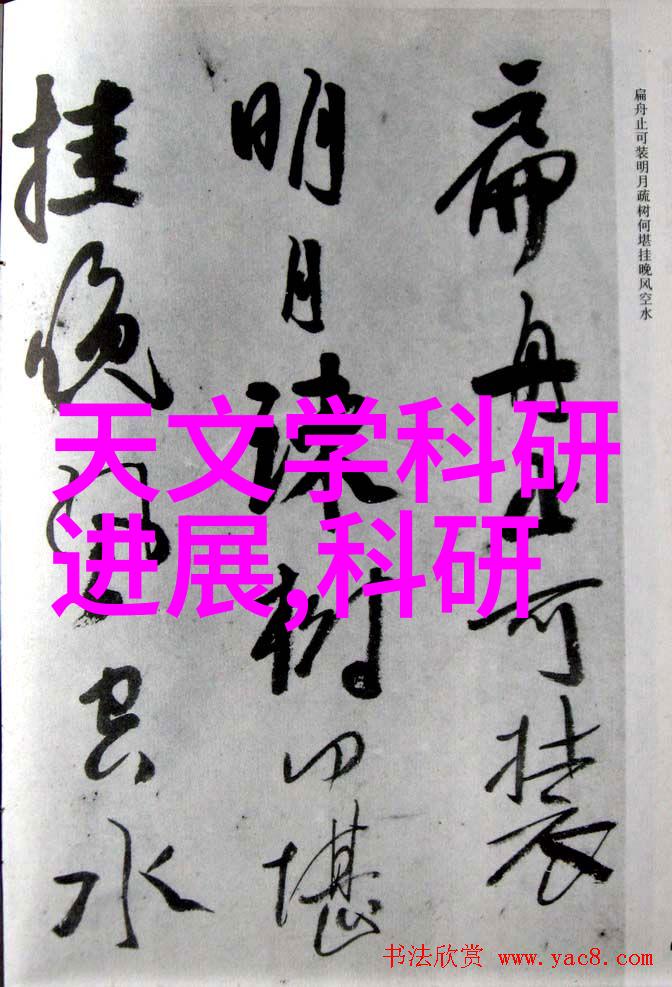 扁舟止可装明月疏树何堪挂晚风空水
扁舟止可装
明月疏树何堪
挂晚风空水
天文学科研
进展,科研
书法欣赏 www.yac8.com